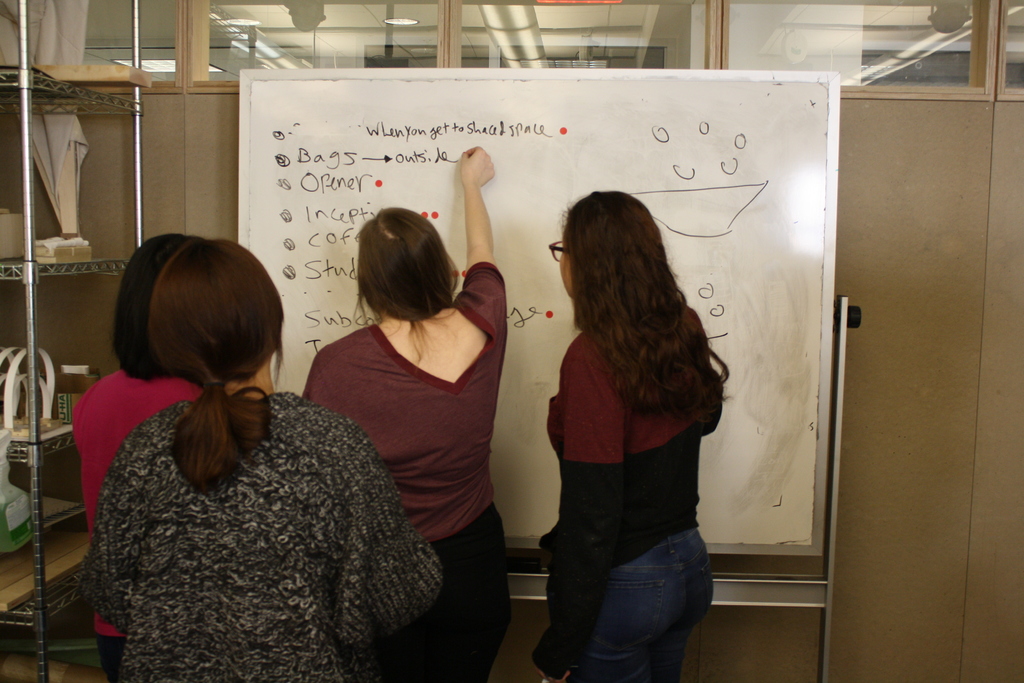 when you get to shared space
Bags → outside
Opener
Incepti
cof
Stud
Subc